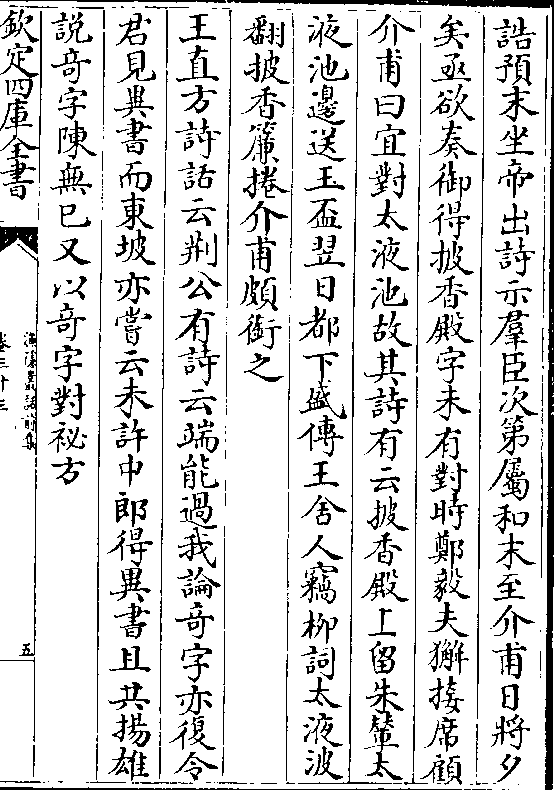 誥預末坐帝出詩示羣臣次第屬和末至介甫日將夕
矣亟欲奏御得披香殿字未有對時鄭毅夫獬接席顧
介甫曰宜對太液池故其詩有云披香殿上留朱輦太
液池邊送玉盃翌日都下盛傳王舍人竊柳詞太液波
翻披香簾捲介甫頗銜之
王直方詩話云荆公有詩云端能過我論奇字亦復令
君見異書而東坡亦嘗云未許中郎得異書且共揚雄
說奇字陳無已又以奇字對祕方
欽定四庫全書
漁隱叢話前集
卷三十三
五